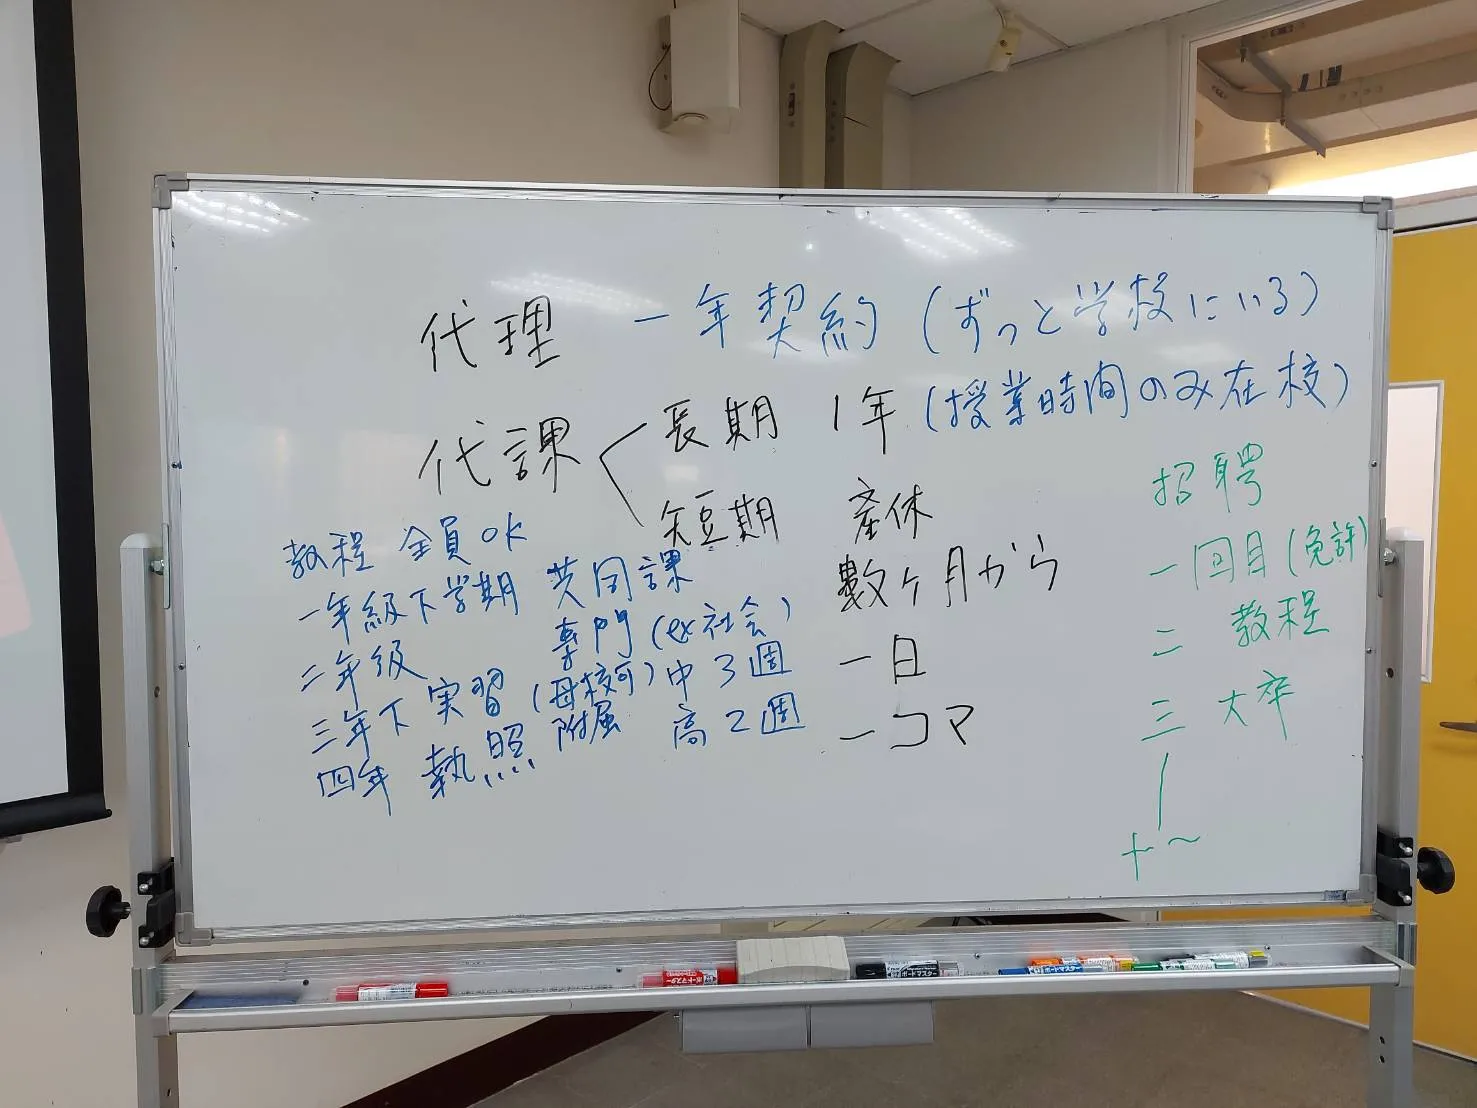 代理 一年契約 (ずっと学校にいる)
代課 長期 1年 (授業時間のみ在校)
短期 產休
數ヶ月から
一日
一コマ
教程 全員OK
一年級下学期 共同課
二年級 專門 (ex社会)
三年下 実習 (母校可) 中3週
附属 高2週
四年 執照
招聘
一回目 (免許)
二 教程
三 大卒
十~
ボードマスター
ボードマスター
ボードマスター